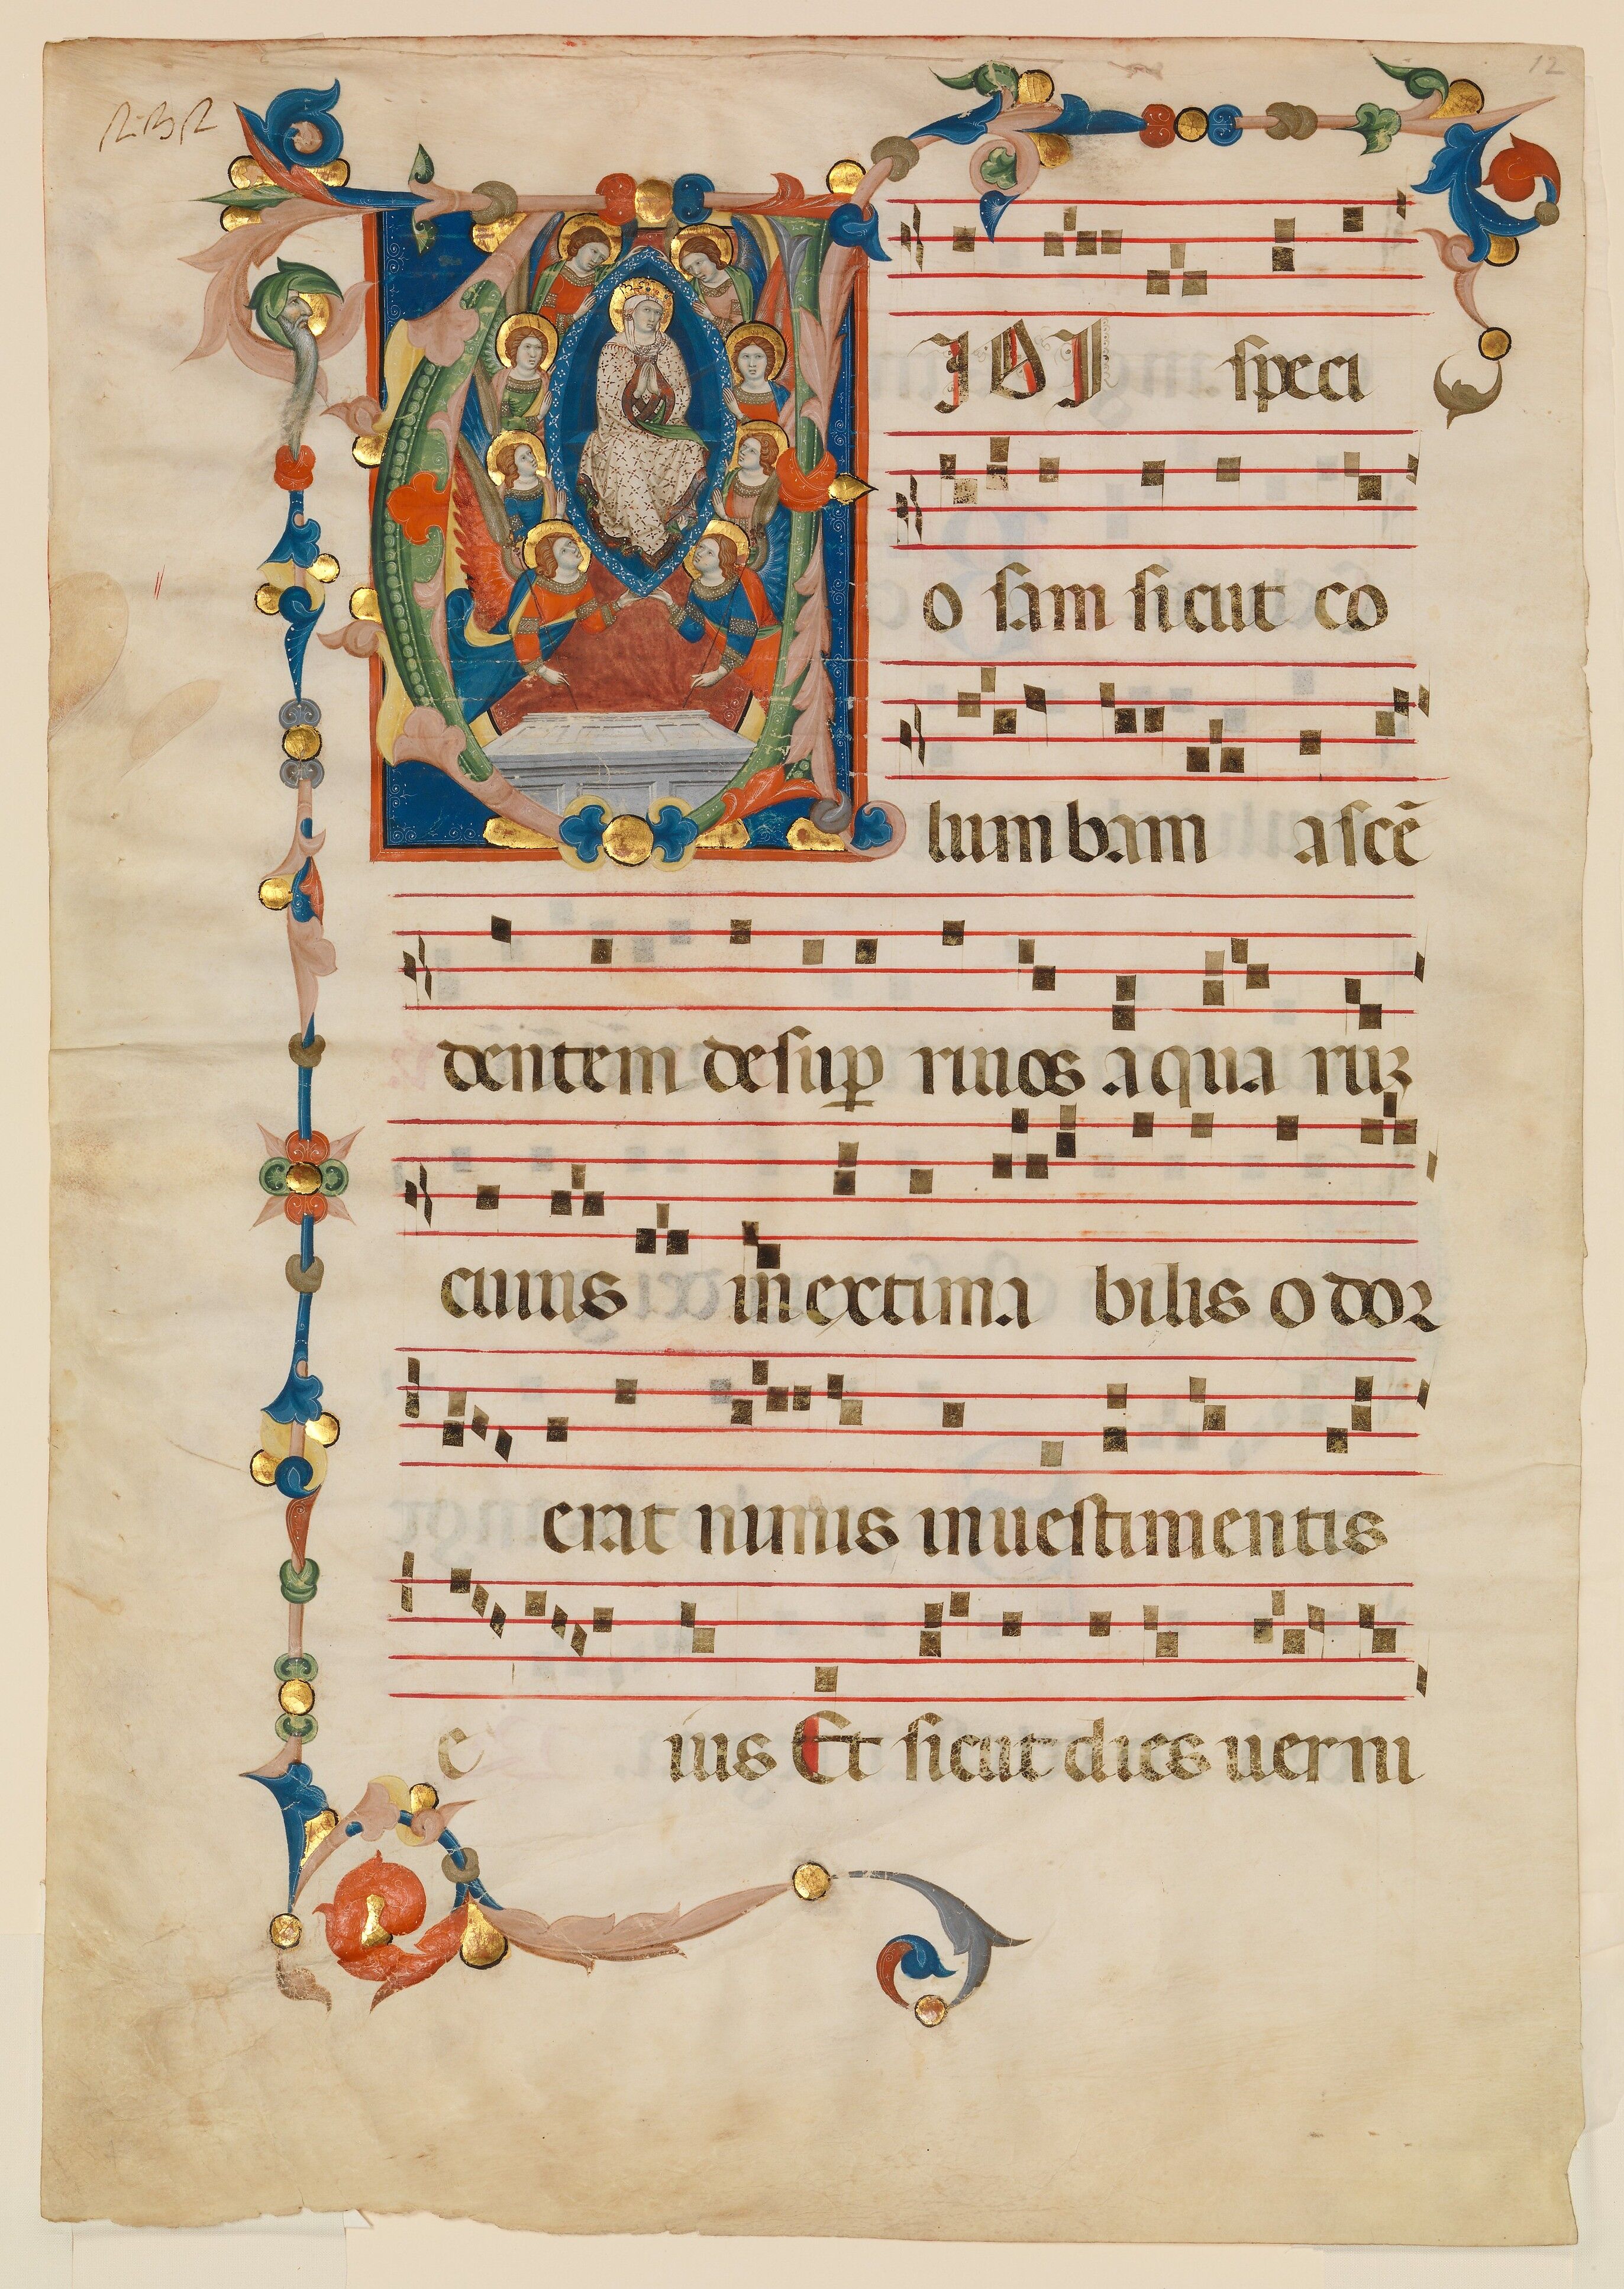 12
IDI speci
o sam sicut co
lum bam ascē
dentem desuꝑ riuos a qua ruꝫ
cuius in extima bilis o dor
erat nimis in uestimentis
e ius Et sicut dies uerni